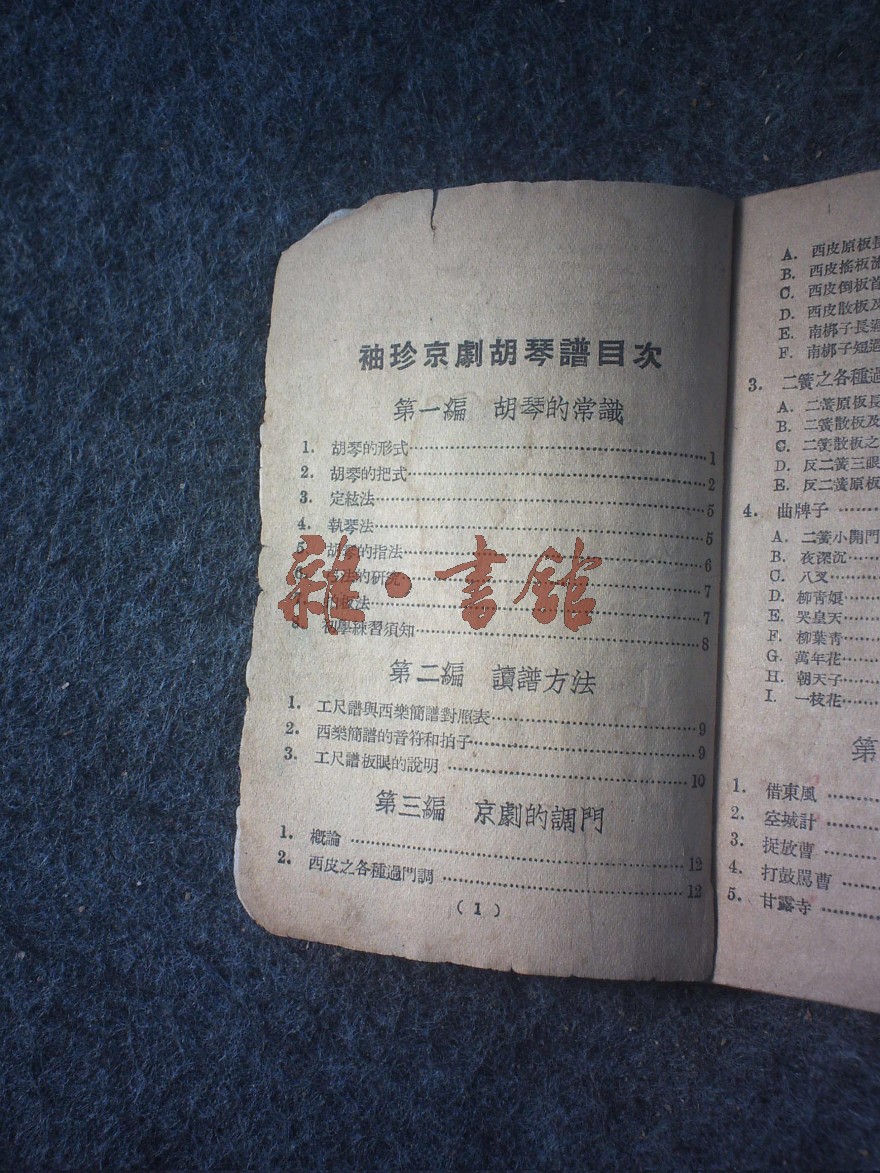 袖珍京劇胡琴譜目次
第一編 胡琴的常識
1. 胡琴的形式 1
2. 胡琴的把式 2
3. 定絃法 5
4. 執琴法 5
5. 胡琴的指法 6
6. 的研究 7
7. 板法 7
8. 初學練習須知 8
第二編 讀譜方法
1. 工尺譜與西樂簡譜對照表 9
2. 西樂簡譜的音符和拍子 9
3. 工尺譜板眼的說明 10
第三編 京劇的調門
1. 概論 12
2. 西皮之各種過門調 12
(1)
A. 西皮原板長
B. 西皮搖板
C. 西皮倒板首
D. 西皮散板及
E. 南梆子長過
F. 南梆子短過
3. 二簧之各種過
A. 二簧原板長
B. 二簧散板及
C. 二簧散板之
D. 反二簧三眼
E. 反二簧原板
4. 曲牌子
A. 二簧小開門
B. 夜深沉
C. 八叉
D. 柳青娘
E. 哭皇天
F. 柳葉青
G. 萬年花
H. 朝天子
I. 一枝花
第
1. 借東風
2. 空城計
3. 捉放曹
4. 打鼓罵曹
5. 甘露寺
雜·書館